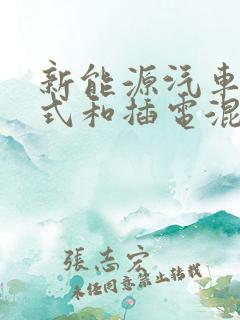 新能源汽車
式和插電混
張志宏
未經同意禁止轉載